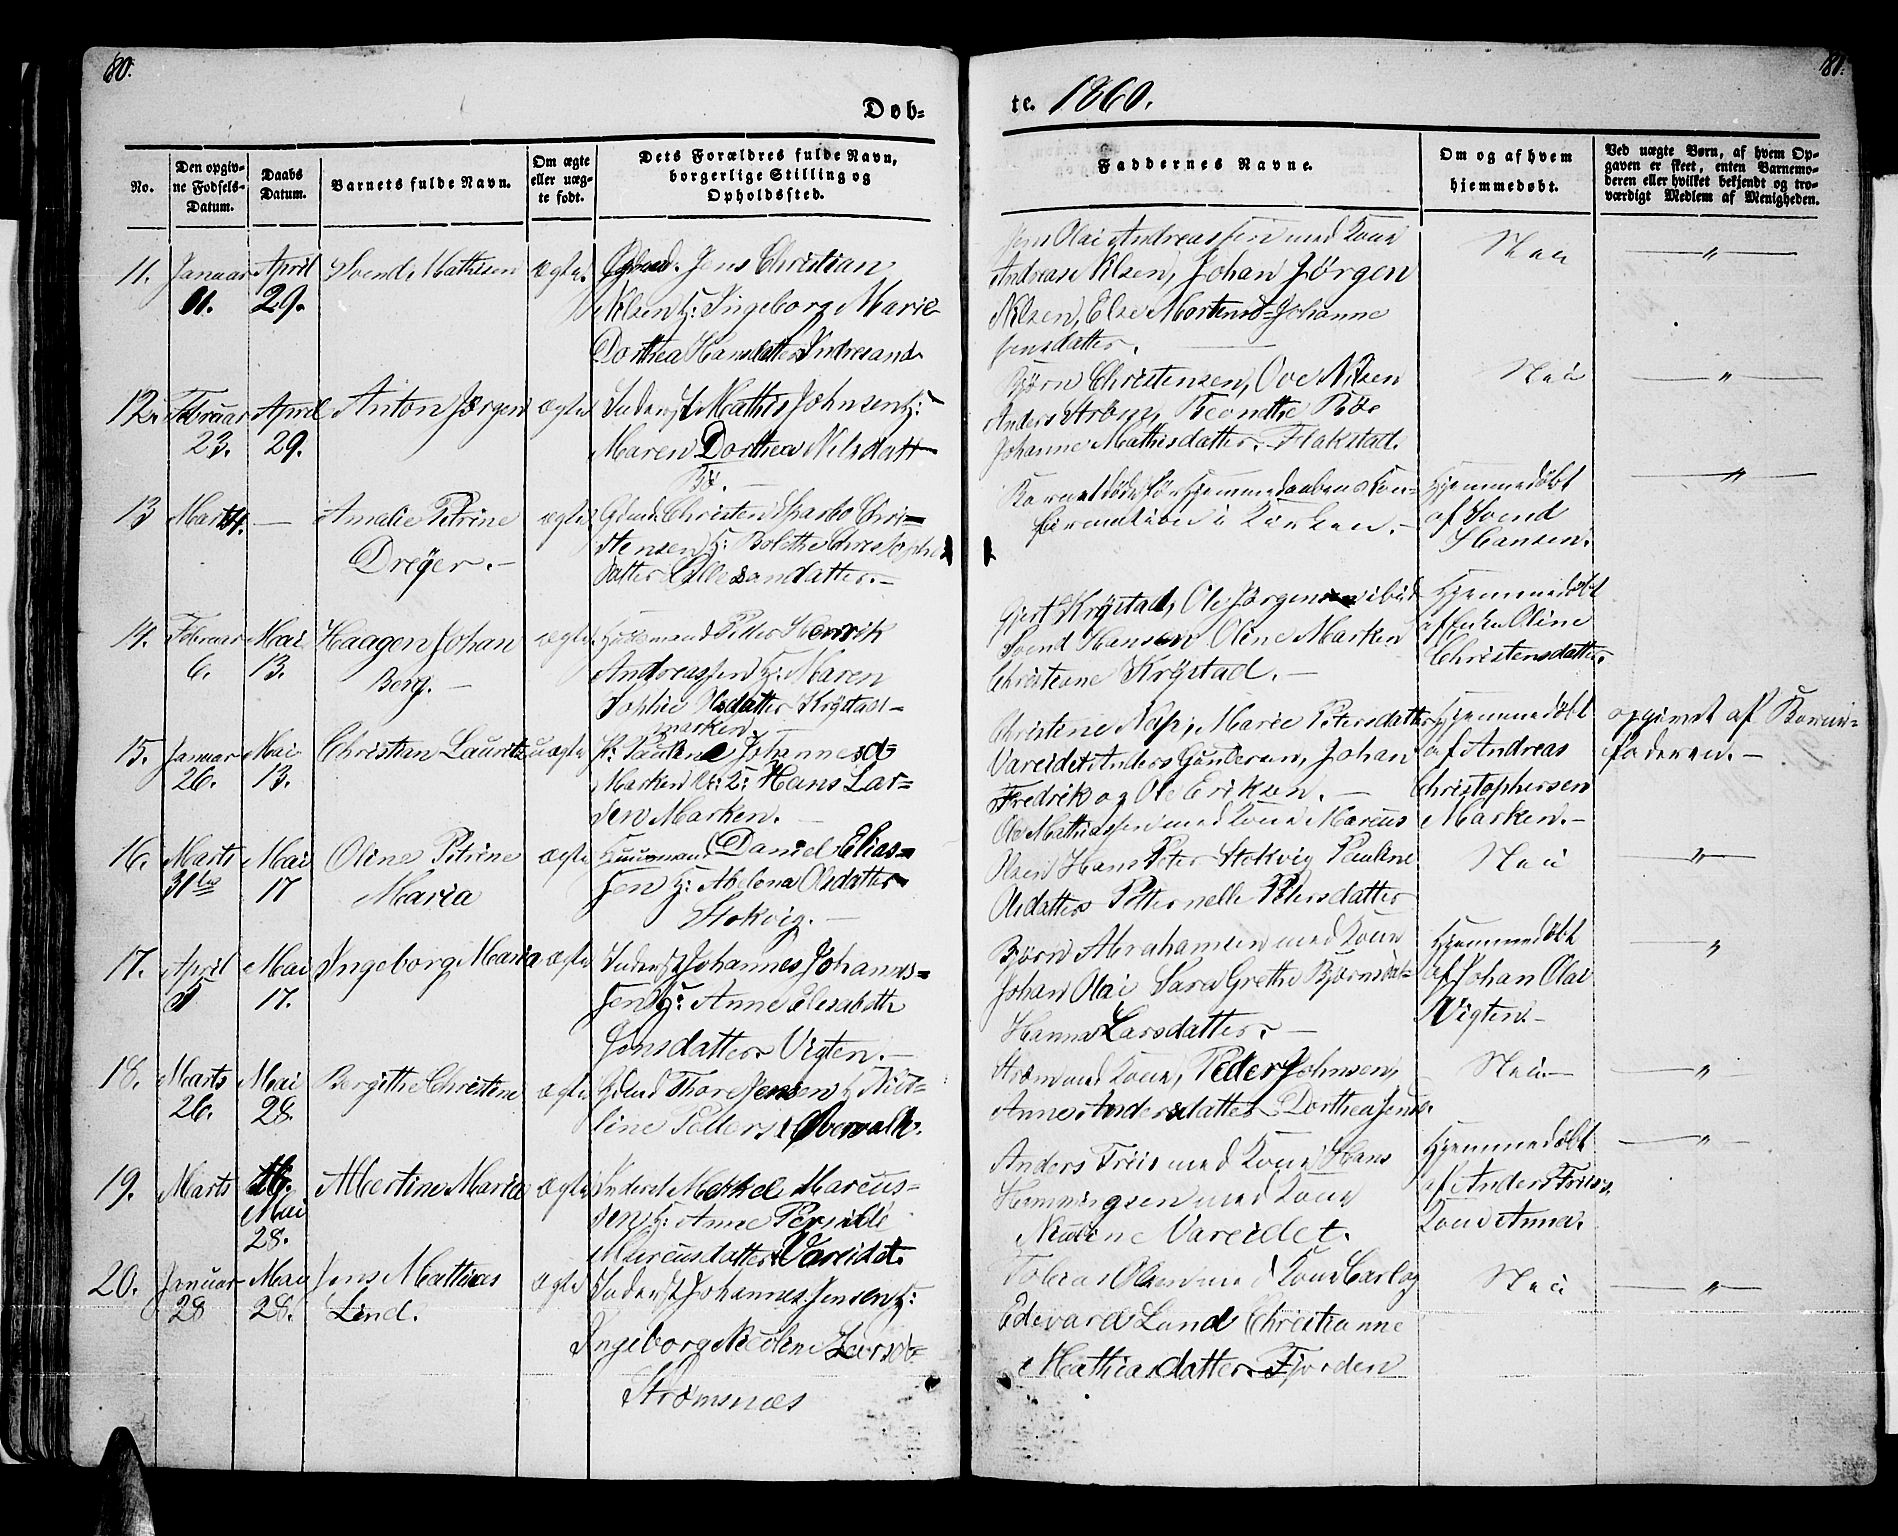 80.
81.
Døb-
te. 1860.
No.
Den opgiv-
ne Fødsels-
Datum.
Daabs
Datum.
Barnets fulde Navn.
Om ægte
eller uæg-
te født.
Dets Forældres fulde Navn,
borgerlige Stilling og
Opholdssted.
Faddernes Navne.
Om og af hvem
hjemmedøbt.
Ved uægte Børn, af hvem Op-
gaven er skeet, enten Barnemo-
deren eller hvilket bekjendt og tro-
værdigt Medlem af Menigheden.
11. Januar April Svend Mathisen ægte Jens Christian
11. 29. Nilsen H: Ingeborg Marie
Dorthea Hansdatter Indresand
Jens Olai Andreassen med Kone
Andrease Nilsen, Johan Jørgen
Nilsen, Else Mortensd. Johanne
Jensdatter.
Nei — " —
12. Februar April Anton Jørgen ægte Inderst Mathis Johnsen H:
23. 29. Maren Dorthea Nilsdatt
Bø. —
Bjørn Christensen, Ove Nilsen
Anders Strøm, Bø
Johanne Mathisdatter. Flakstad.
Nei — " —
13 Marts — Amalie Petrine ægte Gdmd. Christen Sparbo Chri-
Dreyer. — stensen H: Bolethe Christophe
datter
Barnet døde før Hjemmedaabens Kon-
firmation i Kirken. —
Hjemmedøbt
af Svend
Hansen.
— " —
14. Februar Mai Haagen Johan ægte Huusmand Peter Henrik
6. 13. Berg. — Andreassen H: Maren
Sophie Olsdatter Krystad-
marken
Gjert Krystad, Ole Jørgensen ibid
Svend Hansen Oline Marken
Christiane Krystad. —
Hjemmedøbt
af Oline
Christensdatter.
15. Januar Mai Christian Lauritz uægte P: Pauline Johannesd
26. 13. Marken Hans Lar-
sen Marken. —
Christine Nap, Marie Petersdatter
Vareidet Anders Gundersen, Johan
Fredrik og Ole Eriksen. —
Hjemmedøbt
af Andreas
Christophersen
Marken. —
opgivet af Barne-
faderen. —
16. Marts Mai Oline Petrine ægte Huusmand Daniel Elias-
31te 17 Maria sen H: Abelena Olsdatter
Stokvig. —
Ole Mathiassen med Kone Marcus
Olsen Hans Peter Stokvig Pauline
Olsdatter Petternelle Petersdatter
Nei — " —
17. April Mai Ingeborg Maria ægte Inderst Johannes Johannes-
5 17. sen H: Anne Elisabeth
Jonsdatter Vigten. —
Bjørn Abrahamsen med Kone
Johan Olai Sara Grethe Bjørnsdat-
Hanna Larsdatter. —
Hjemmedøbt
af Johan Olai
Vigten. —
"
18. Marts Mai Bergitthe Christine ægte Gdmd Thore Jensen H
26. 28. line Petters
Strøm med Kone, Peder Johnsen,
Anne Andersdatter Dorthea Jensd.
Nei. — — " —
19. Marts Mai Albertine Maria ægte Inderst Mekel Marcus-
28. sen H: Anne Pernille
Marcusdatter Vareidet.
Anders Friis med Kone Hans
Hemmingsen med Kone
Nicoline Vareidet.
Hjemmedøbt
af Anders Friis's
Kone Anna.
— " —
20. Januar Mai Jens Mathias ægte Inderst Johannes Jensen H:
28 28. Lind. Ingeborg Nicoline Larsd.
Strømsnæs
Tobias Olsen med Kone Carl og
Edevard Lund Christianne
Mathiasdatter Fjorden
Nei — " —